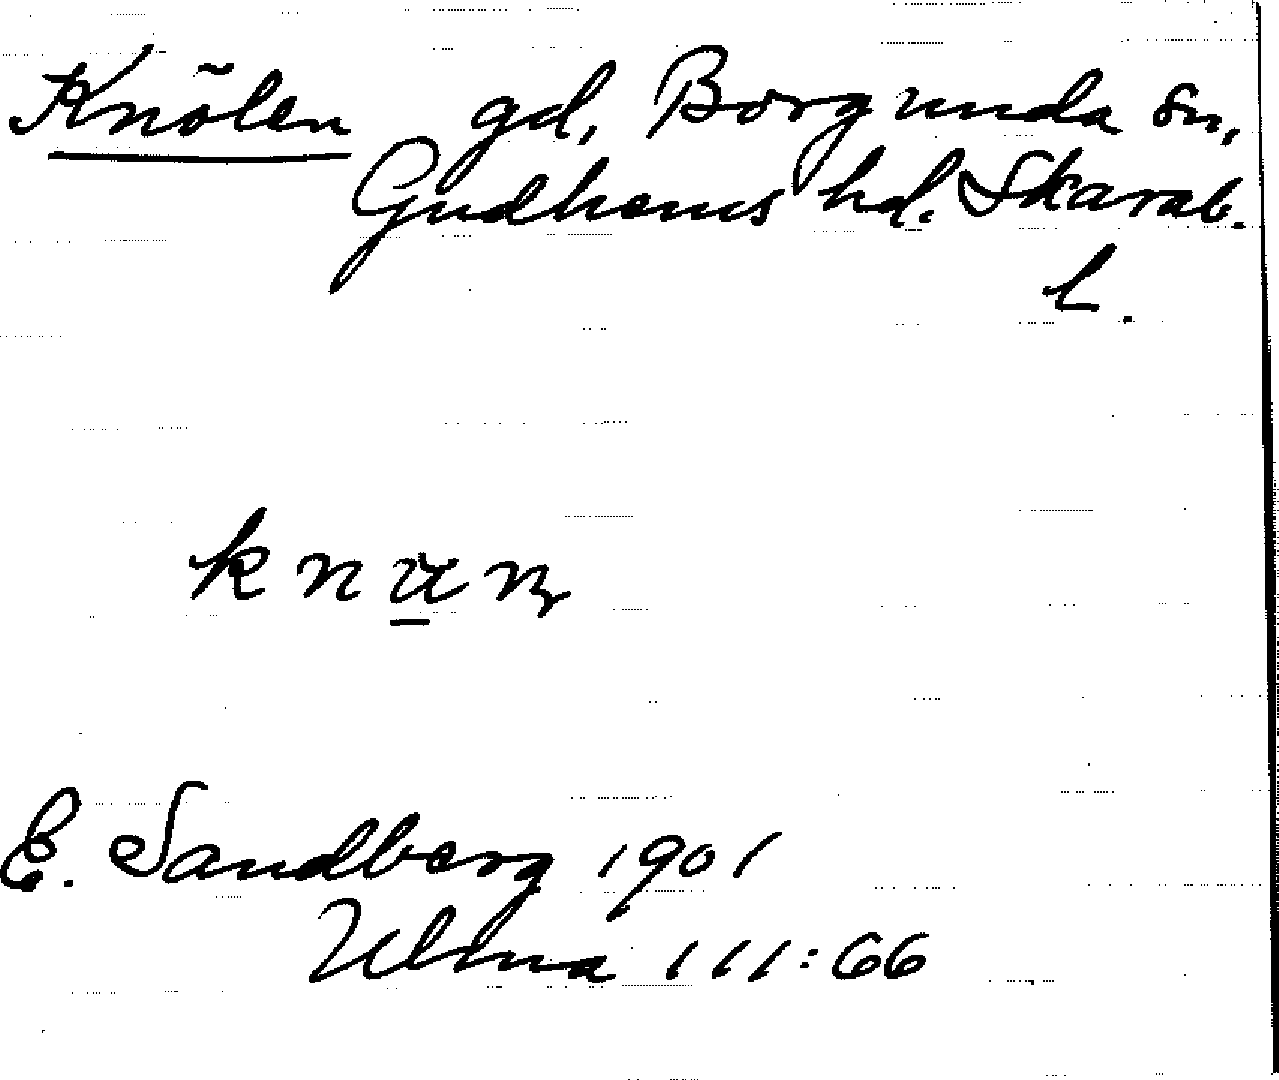 Knölen gd, Borgunda sn,
Gudhems hd. Skarab.
l.
E. Sandberg 1901
Ulma 111:66